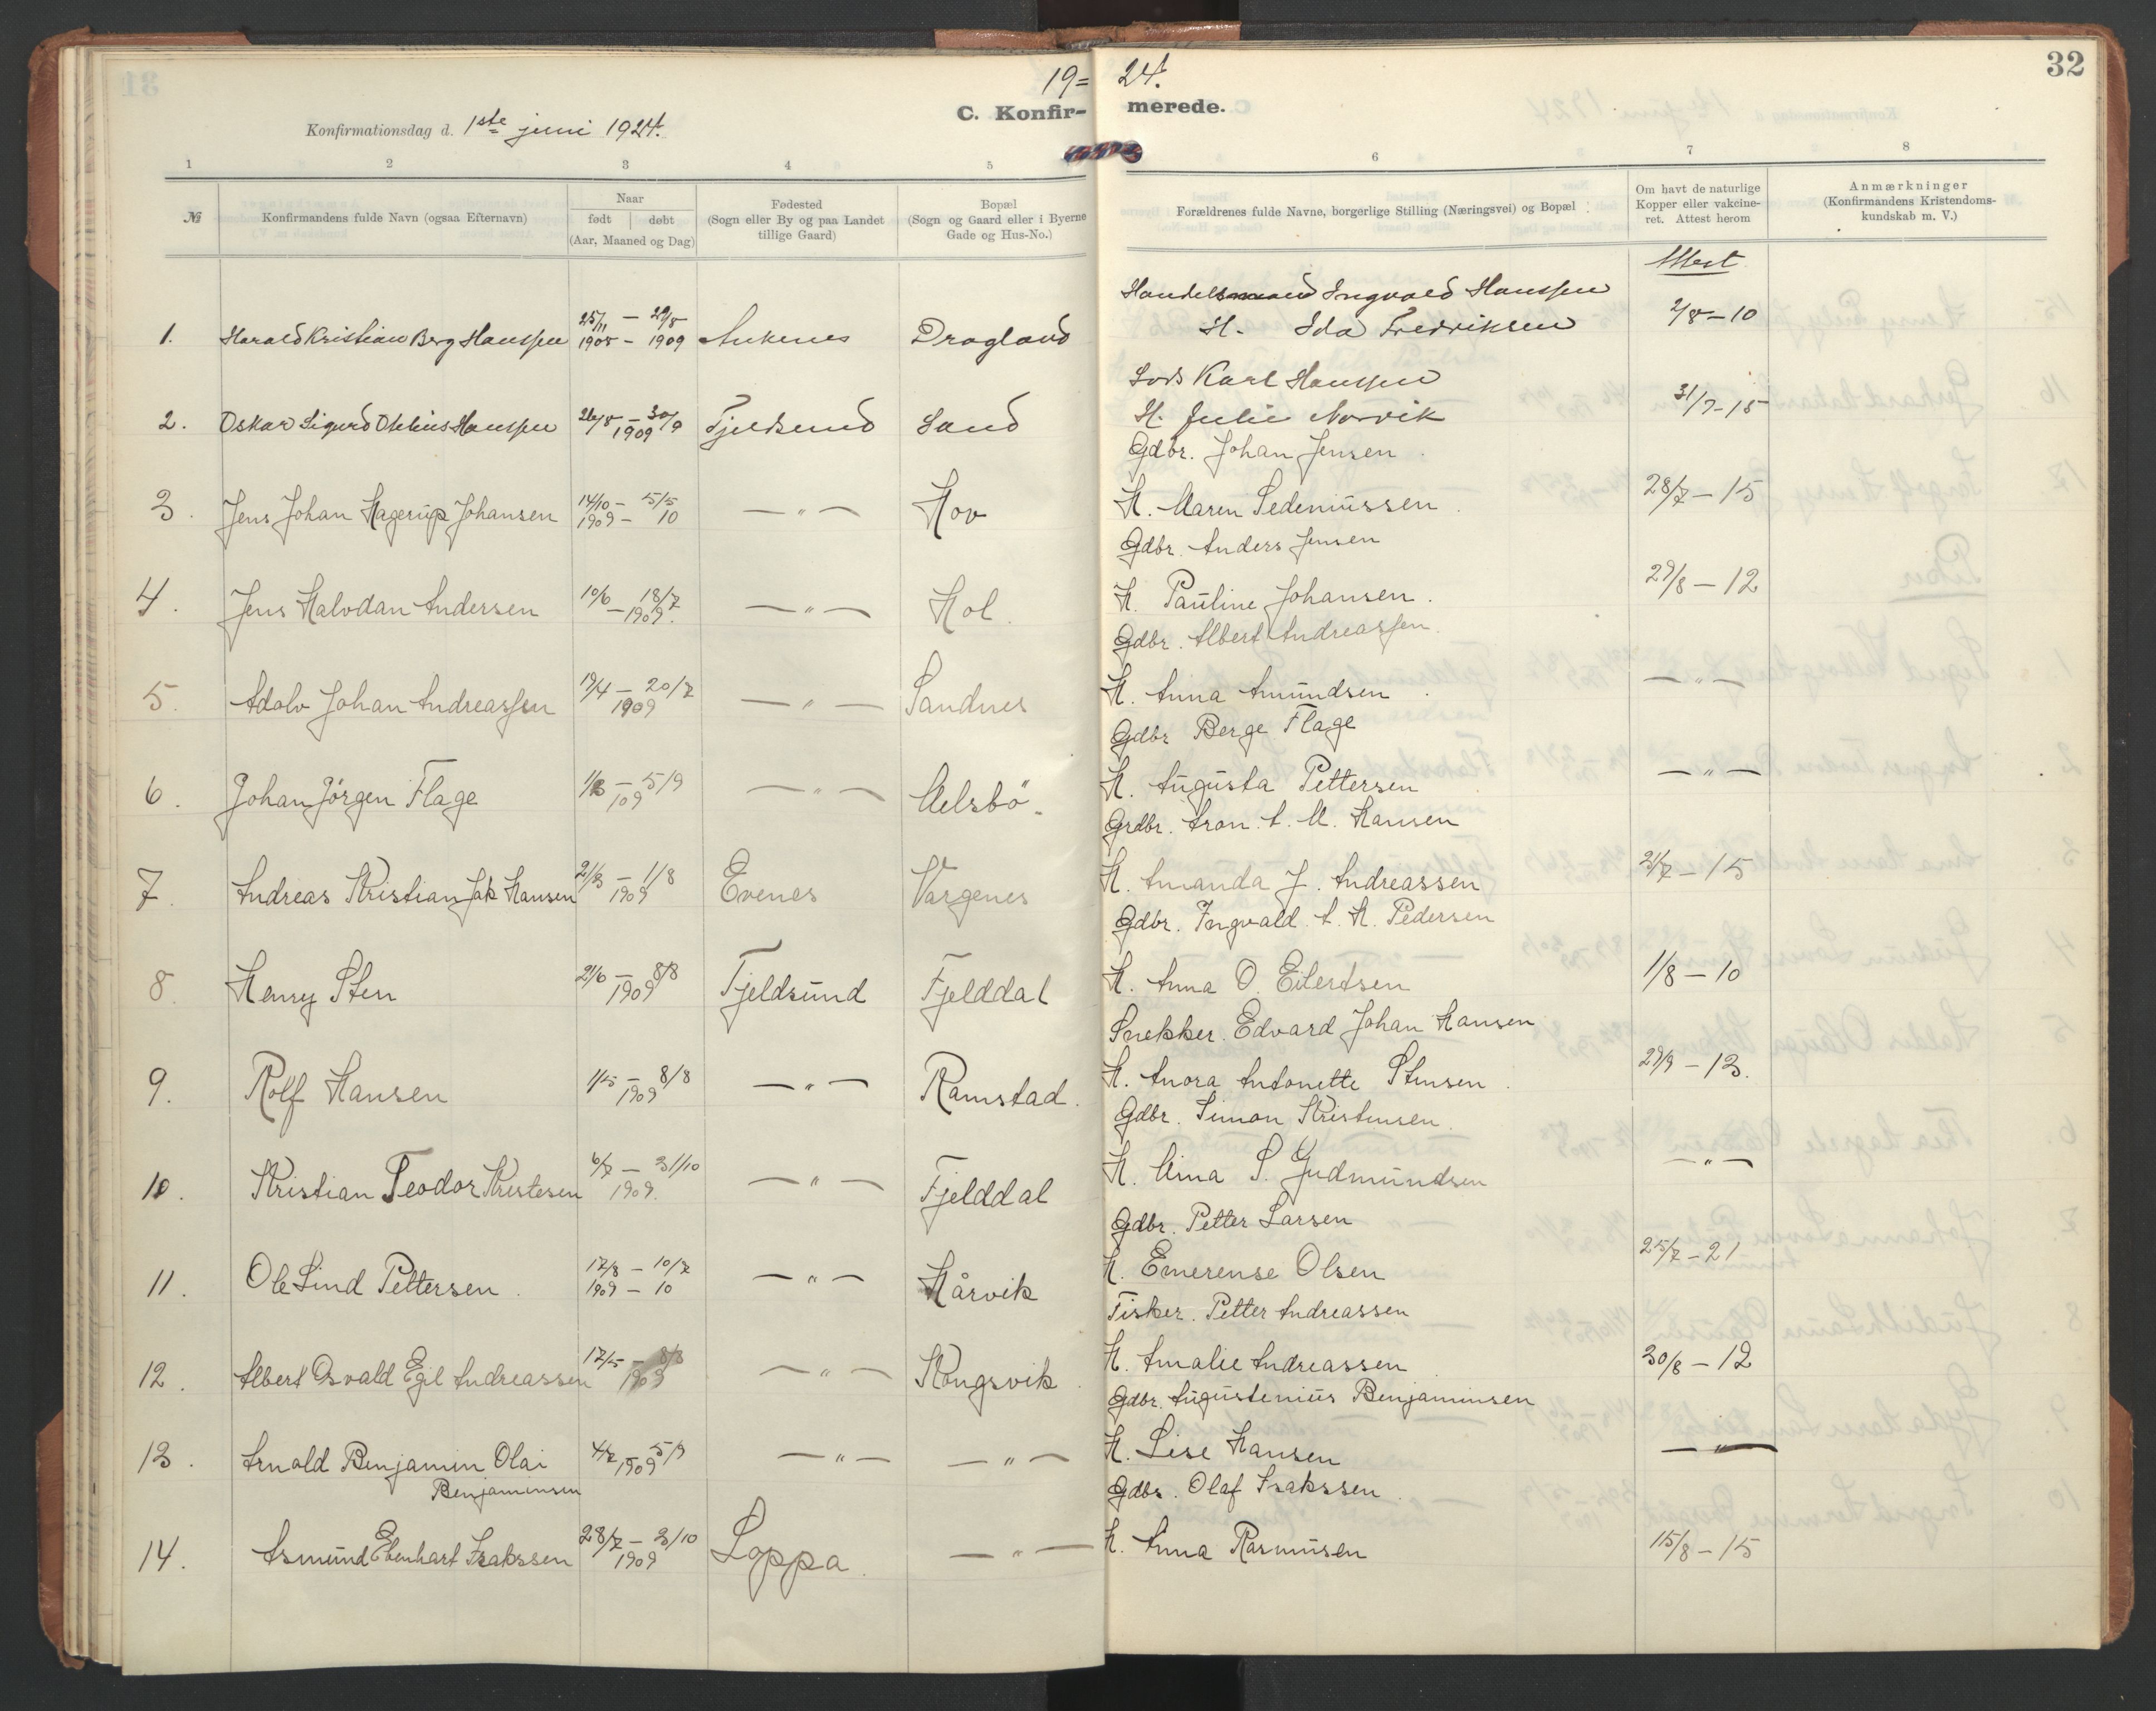 19= 24.
32
C. Konfir- merede.
Konfirmationsdag d. 1ste juni 1924.
1 2 3 4 5 6 7 8
№
Konfirmandens fulde Navn (ogsaa Efternavn)
Naar
født døbt
(Aar, Maaned og Dag)
Fødested
(Sogn eller By og paa Landet
tillige Gaard)
Bopæl
(Sogn og Gaard eller i Byerne
Gade og Hus-No.)
Forældrenes fulde Navne, borgerlige Stilling (Næringsvei) og Bopæl
Om havt de naturlige
Kopper eller vakcine-
ret. Attest herom
Anmærkninger
(Konfirmandens Kristendoms-
kundskab m. V.)
Attest
Handelsmand Ingvald Hanssen
1. Harald Kristian Berg Hanssen 25/11 — 29/8 1908 — 1909 Ankenes Dragland
H. Ida Fredriksen 2/8 — 10
Lods Karl Hanssen
2. Oskar Sigurd Hanssen 26/8 — 30/9 1909 Fjeldsund Sand
H. Julie Norvik 31/7 - 15
Gdbr. Johan Jensen
3. Jens Johan Hagerup Johansen 14/10 — 5/5 1909 — 10 — " — Hov
H. Maren Sedeniussen 28/7 — 15
Gdbr. Anders Jensen
4. Jens Halvdan Andersen 10/6 — 18/7 1909. — " — Hol
H. Pauline Johansen. 29/8 — 12
Gdbr. Albert Andreassen.
5. Adolv Johan Andreassen 19/4 — 20/7 1909 — " — Sandnes
H. Anna Amundsen — " —
Gdbr Berge Flage
6. Johan Jörgen Flage 5/9 109 — " —
H. Augusta Pettersen — " —
Grdbr. Aron. A. M. Hansen
7. Andreas Kristian Jak Hansen 21/3 — 1/8 1909 Evenes Vargenes
H. Amanda J. Andreassen 31/7 — 15
Gdbr. Ingvald A. H. Pedersen
8. Henry Sten 21/6 — 8/8 1909 Fjeldsund Fjelddal
H. Anna O. Eilertsen 1/8 — 10
Snekker. Edvard Johan Hansen
9. Rolf Hansen 1/5 — 8/8 1909 — " — Ramstad.
H. Anora Antonette Stensen 29/9 — 13.
Gdbr. Simon Kristensen.
10. Kristian Teodor Kristesen 6/7 — 31/10 1909. — " — Fjelddal
H. S. Gudmundsen — " —
Gdbr. Petter Larsen
11. Ole Lind Pettersen 17/8 — 10/7 1909 — 10 — " — Hårvik
H. Emerense Olsen 25/7 — 21
Fisker. Petter Andreassen
12. Albert Osvald Egil Andreassen 17/5 — 8/8 1909 — " — Kongsvik
H. Amalie Andreassen 30/8 — 12
Gdbr. Augustenius Benjaminsen
13. Arnold Benjamin Olai 4/7 — 5/9 1909 — " — — " —
Benjaminsen
H. Lise Hansen — " —
Gdbr. Olaf Isakssen
14. Asmund Ebenhart Isakssen 28/7 — 3/10 1909 Loppa — " —
H. Anna Rasmusen 15/8 — 15